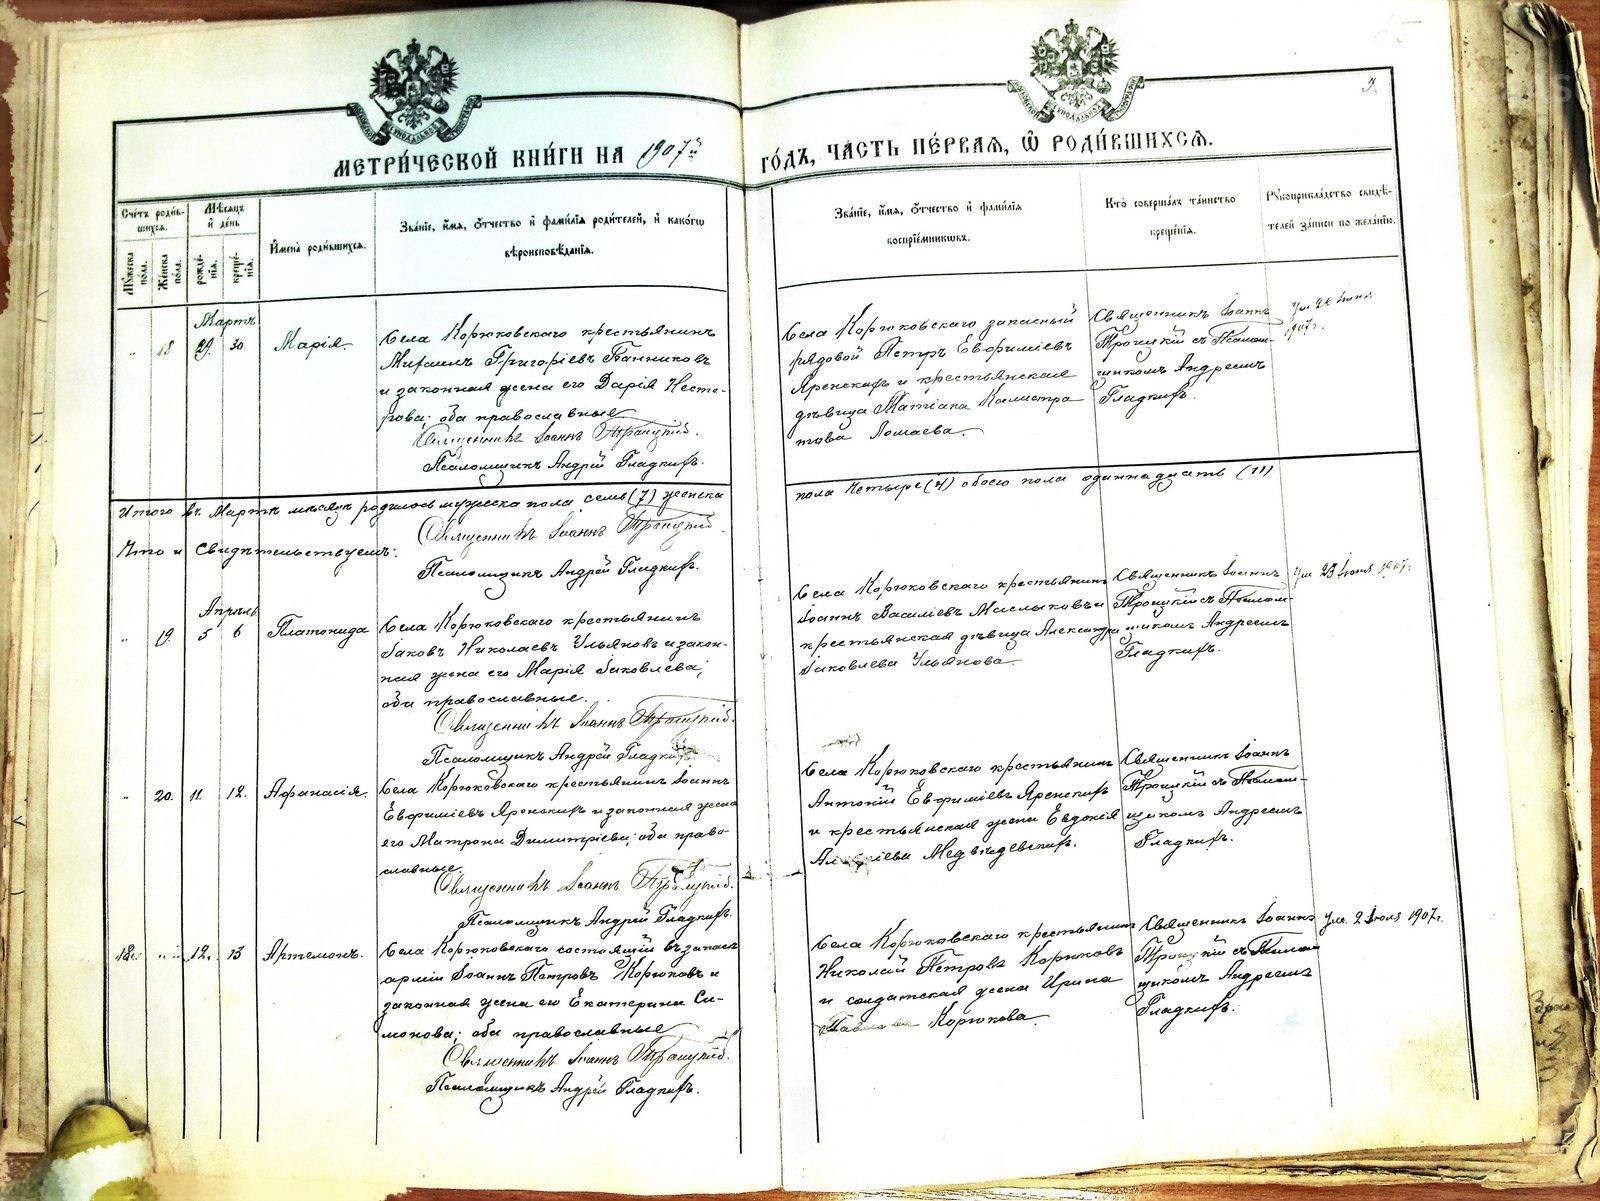 МЕТРИ́ЧЕСКОЙ КНИ́ГИ НА 1907й ГО́ДЪ, ЧА́СТЬ ПЕ́РВАЯ, Ѿ РОДИ́ВШИХСЯ.
Сче́тъ роди́в-
шихся.
Му́жеска по́ла.
Же́нска по́ла.
Мѣ́сяцъ
и де́нь
рожде́-
нія.
креще́-
нія.
Имена̀ роди́вшихся.
Зва́ніе, и́мя, о́тчество и фами́лія роди́телей, и како́гѡ
вѣроисповѣ́данія.
Зва́ніе, и́мя, о́тчество и фами́лія
воспріе́мниковъ.
Кто̀ соверша́лъ та́инство
креще́нія.
Рукоприкла́дство свидѣ́-
телей за́писи по жела́нію.
Мартъ
" 18 29. 30. Марія.
Села Корюковскаго крестьянинъ
Михаилъ Григоріевъ Банниковъ
и законная жена его Дарія Несте-
рова; оба православные
Священникъ Іоаннъ Троицкій.
Псаломщикъ Андрей Гладкихъ.
Села Корюковскаго запасный
рядовой Петръ Евфиміевъ
Яренскихъ и крестьянская
дѣвица Татіана Калистра
това Ломаева.
Священникъ Іоаннъ
Троицкій съ Псалом-
щикомъ Андреемъ
Гладкихъ.
1907 г.
Итого въ Мартѣ мѣсяцѣ родилось мужеска пола семь (7) женска
пола Четыре (4) обоего пола одиннадцать (11)
Что и свидѣтельствуемъ:
Священникъ Іоаннъ Троицкій
Псаломщикъ Андрей Гладкихъ.
Апрѣль
" 19. 5 6 Платонида
Села Корюковскаго крестьянинъ
Іаковъ Николаевъ Ульяновъ и закон-
ная жена его Марія Іаковлева;
оба православные.
Священникъ Іоаннъ Троицкій.
Псаломщикъ Андрей Гладкихъ
Села Корюковскаго крестьянинъ
Іоаннъ Василіевъ Маслыковъ и
крестьянская дѣвица Александра
Іаковлева Ульянова.
Священникъ Іоаннъ
Троицкій съ Псалом-
щикомъ Андреемъ
Гладкихъ.
1907 г.
" 20. 11. 12. Афанасія.
Села Корюковскаго крестьянинъ Іоаннъ
Евфиміевъ Яренскихъ и законная жена
его Матрона Димитріева; оба право-
славные.
Священникъ Іоаннъ Троицкій.
Псаломщикъ Андрей Гладкихъ.
Села Корюковскаго крестьянинъ
Антоній Евфиміевъ Яренскихъ
и крестьянская жена Евдокія
Алексіева Медвѣдевскихъ.
Священникъ Іоаннъ
Троицкій съ Псалом-
щикомъ Андреемъ
Гладкихъ.
18. " " 12. 13 Артемонъ.
Села Корюковскаго состоящій въ запасѣ
арміи Іоаннъ Петровъ Корюковъ и
законная жена его Екатерина Си-
монова; оба православные
Священникъ Іоаннъ Троицкій.
Псаломщикъ Андрей Гладкихъ.
Села Корюковскаго крестьянинъ
Николай Петровъ Корюковъ
и солдатская жена Ирина
Павлова Корюкова.
Священникъ Іоаннъ
Троицкій съ Псалом
щикомъ Андреемъ
Гладкихъ.
Ум. 2 Іюля 1907 г.